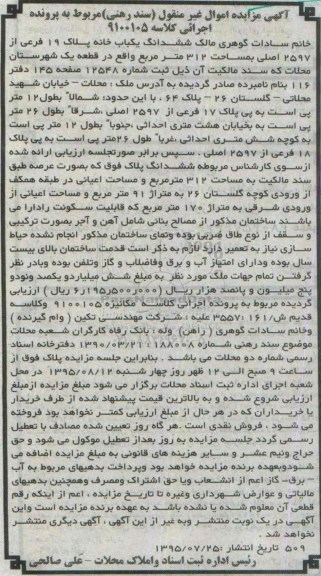 آگهی مزایده اموال غیر منقول (سند رهنی) مربوط به پرونده
اجرائی کلاسه ۹۱۰۰۱۰۵
خانم سادات گوهری مالک ششدانگ یکباب خانه پلاک ۱۹ فرعی از
۲۵۹۷ اصلی بمساحت ۳۱۲ متر مربع واقع در قطعه یک شهرستان
محلات که سند مالکیت آن ذیل ثبت شماره ۱۲۵۴۸ صفحه ۱۴۵ دفتر
۱۱۶ بنام نامبرده صادر گردیده به آدرس ملک : محلات – خیابان شهید
محلاتی – گلستان ۲۶ – پلاک ۶۴ ، با این حدود: شمالاً بطول ۱۲ متر
پی است به پی پلاک ۱۷ فرعی از ۲۵۹۷ اصلی ،شرقاً بطول ۲۶ متر
پی است به بخیابان هشت متری احداثی ،جنوباً بطول ۱۲ متر پی است
به کوچه شش متری احداثی ،غرباً طول ۲۶متر پی است به پی پلاک
۱۸ فرعی از ۲۵۹۷ اصلی . سپس برابر صورتجلسه ارزیابی ارائه شده
ازسوی کارشناس مربوطه ششدانگ پلاک فوق که بصورت عرصه طبق
سند مالکیت به مساحت ۳۱۲ مترمربع و مساحت اعیانی در طبقه همکف
از ورودی کوچه گلستان ۲۶ به متراژ ۹۱ متر مربع و مساحت اعیانی از
ورودی شرقی به متراژ ۱۷۰ متر مربع که قابلیت سکونت رادارا می
باشند ساختمان مذکور از مصالح بنائی شامل آهن و آجر بصورت ترکیبی
و سقف از نوع طاق ضربی بوده ونمای ساختمان مذکور انجام نشده حیاط
سازی نیاز به تعمیر دارد لازم به ذکر است قدمت ساختمان بالای بیست
سال بوده ودارای امتیاز آب و برق وفاضلاب و گاز وتلفن بوده وبادر نظر
گرفتن تمام جهات ملک مورد نظر به مبلغ شش میلیاردو یکصد ونودو
پنج میلیون و پانصد هزار ریال (۶٫۱۹۵٫۵۰۰٫۰۰۰ ریال ) ارزیابی
گردیده مربوط به پرونده اجرائی کلاسه مکانیزه ۹۱۰۰۱۰۵ وکلاسه
قدیم ش/۱۶۱ :۳۵۵۷ علیه : شرکت مهندسی تکین ( وام گیرنده )
وخانم سادات گوهری ( راهن) وله : بانک رفاه کارگران شعبه محلات
موضوع سند رهنی شماره ۱۱۸۸۰۰۸–۱۳۹۰/۰۳/۲۱ دفترخانه اسناد
رسمی شماره دو محلات می باشد . بنابراین جلسه مزایده پلاک فوق از
ساعت ۹ صبح الی ۱۲ ظهر روز چهار شنبه ۱۳۹۵/۰۸/۱۲ در محل
شعبه اجرای اداره ثبت اسناد محلات برگزار می شود مبلغ مزایده ازمبلغ
ارزیابی شروع شده و به بالاترین قیمت پیشنهاد شده از طرف خریدار
یا خریداران که در هر حال از مبلغ ارزیابی کمتر نخواهد بود فروخته
می شود . فروش نقدی است .هر گاه روز تعیین شده مصادف با تعطیل
رسمی گردد جلسه مزایده به روز بعداز تعطیل موکول می شود و حق
حراج ونیم عشر و سایر هزینه های قانونی به مبلغ مزایده اضافه می
شودوبعهده برنده مزایده خواهد بود وپرداخت بدهیهای مربوط به آب
– برق– گاز اعم از انشعاب ویا حق اشتراک ومصرف وهمچنین بدهیهای
مالیاتی و عوارض شهرداری وغیره تا تاریخ مزایده ، اعم از اینکه رقم
قطعی آن معلوم شده یا نشده باشد به عهده برنده مزایده است واین
آگهی در یک نوبت منتشر وبه غیر از این آگهی ، آگهی دیگری منتشر
نخواهد شد .
۵۰۹ تاریخ انتشار :۱۳۹۵/۰۷/۲۵
رئیس اداره ثبت اسناد واملاک محلات –علی صالحی